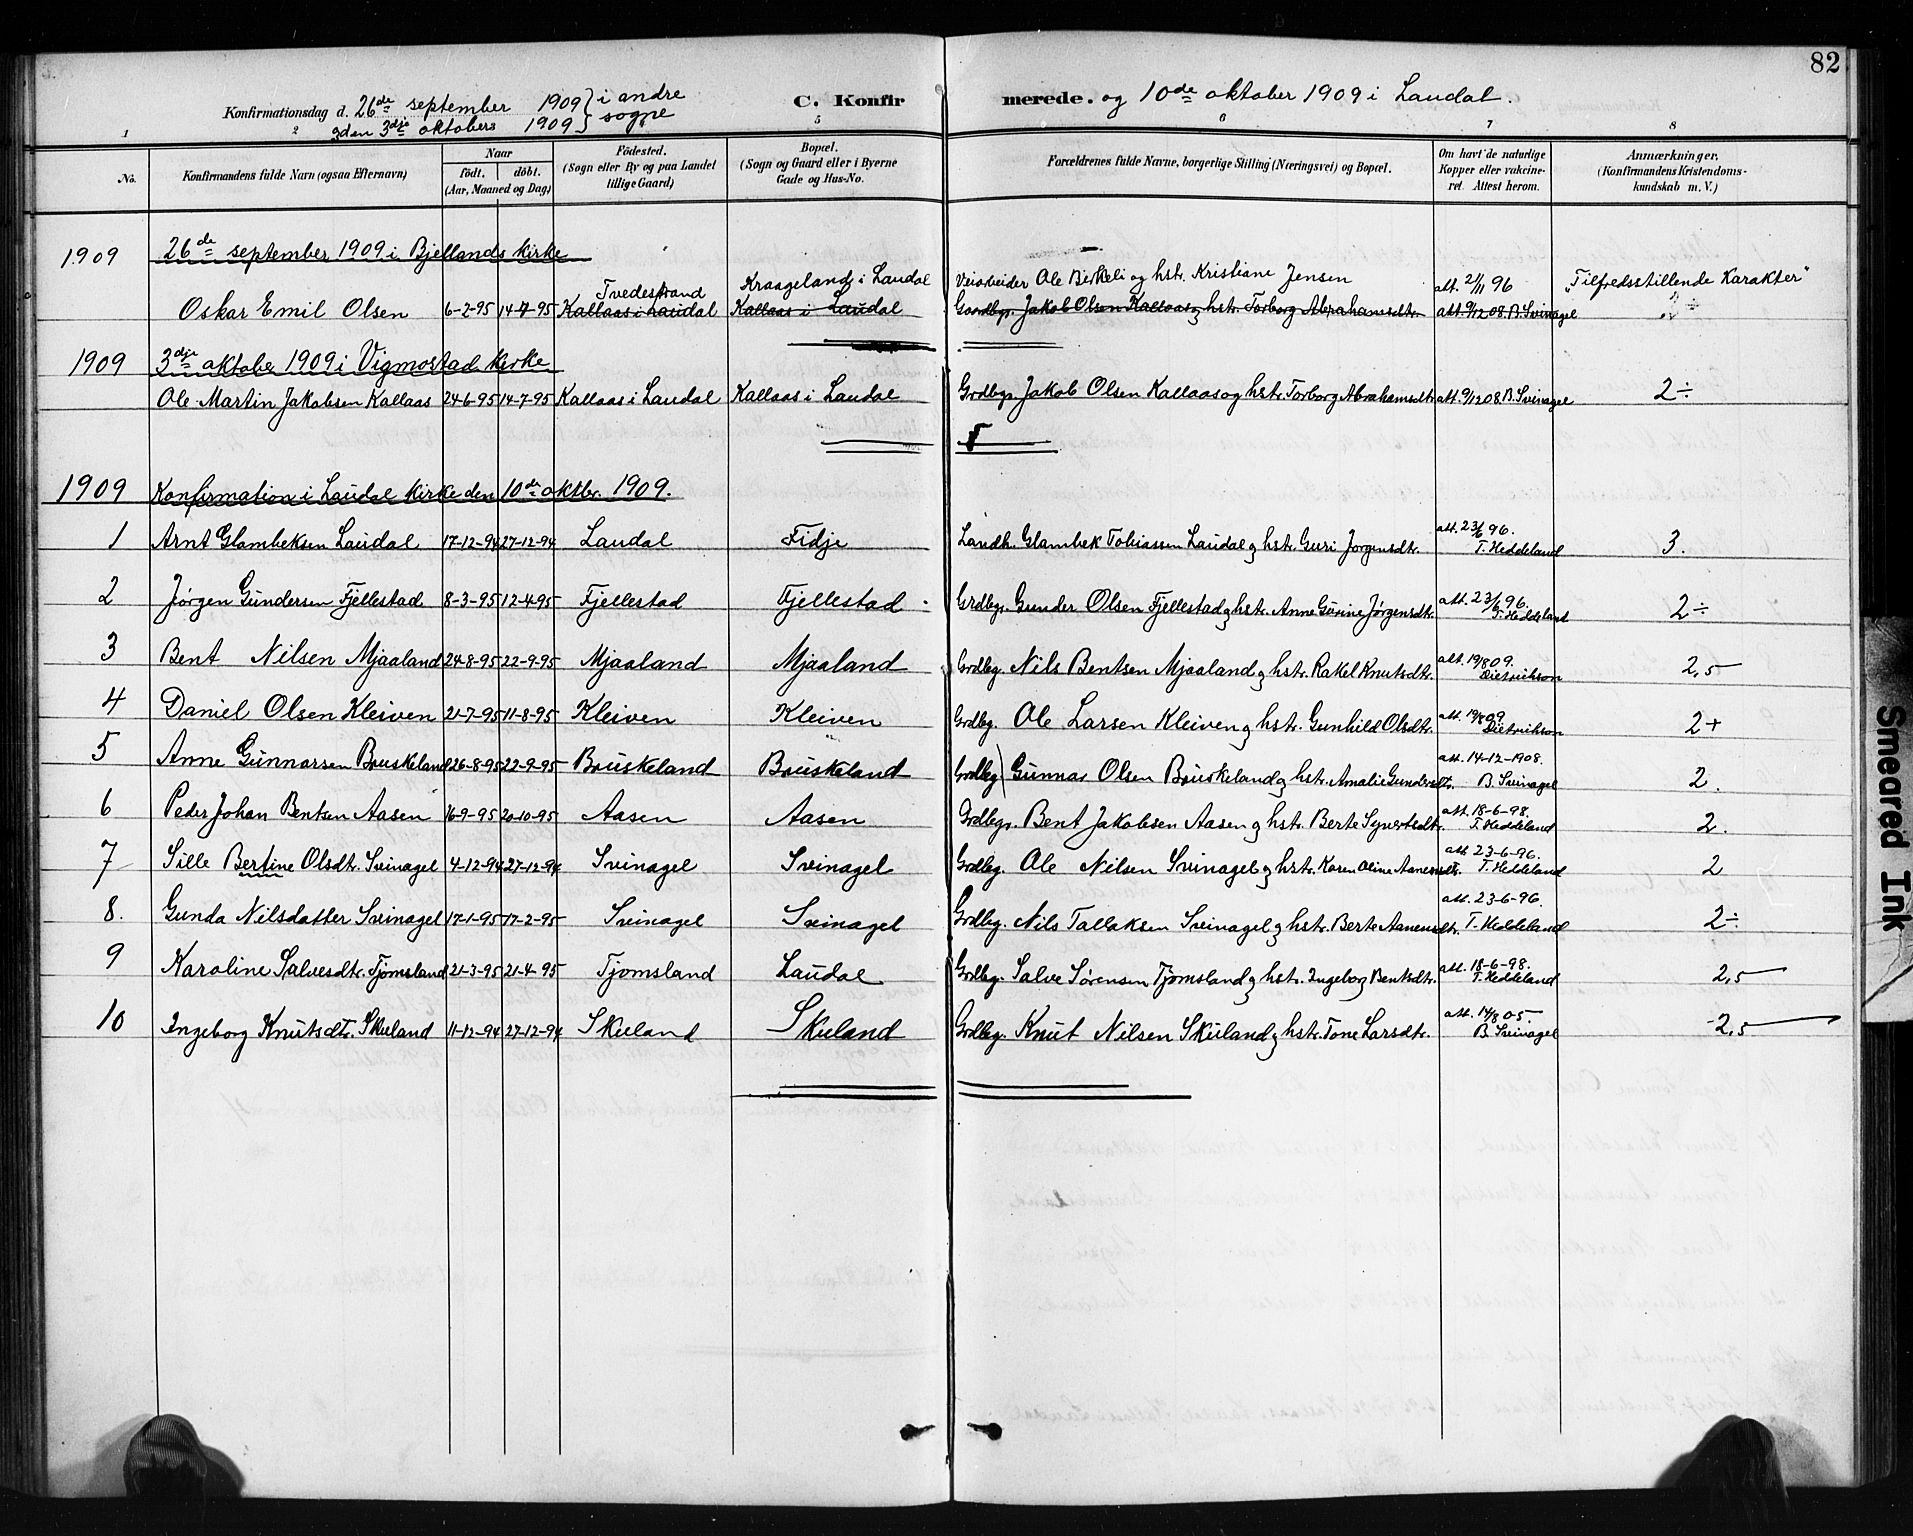 82
Konfirmationsdag d. 26de september 1909 } i andre C. Konfirmerede. og 10de oktober 1909 i Laudal.
den 3dje oktober 1909 } sogne
1 2 5 6 7 8
No. Konfirmandens fulde Navn (ogsaa Efternavn) Naar født. døbt. (Aar, Maaned og Dag) Fødested. (Sogn eller By og paa Landet tillige Gaard) Bopæl. (Sogn og Gaard eller i Byerne Gade og Hus-No. Forældrenes fulde Navne, borgerlige Stilling (Næringsvei) og Bopæl. Om havt de naturlige Kopper eller vakcineret. Attest herom. Anmærkninger. (Konfirmandens Kristendomskundskab m. V.)
1909 26de september 1909 i Bjellands kirke
Tvedestrand Kraageland i Laudal Veiarbeider Ole Birkeli og hstr. Kristiane Jensen att. 2/11 96 "Tilfredsstillende Karakter"
Oskar Emil Olsen 6-2-95 14-7-95 Kallaas i Laudal Kallaas i Laudal Gaardbgr. Jakob Olsen Kallaas og hstr. Torborg Abrahamsdtr. att. 9/12 08. B. Svinagel
1909 3dje oktober 1909 i Vigmostad kirke
Ole Martin Jakobsen Kallaas 24-6-95 14-7-95 Kallaas i Laudal Kallaas i Laudal Grdbgr. Jakob Olsen Kallaas og hstr. Torborg Abrahamsdtr. att. 9/12 08. B. Svinagel 2÷
1909 Konfirmation i Laudal kirke den 10de oktbr. 1909.
1 Arnt Glambeksen Laudal 17-12-94 27-12-94 Laudal Fidje Landh. Glambek Tobiassen Laudal & hstr. Guri Jørgensdtr. att. 23/6 96. T. Heddeland 3.
2 Jørgen Gundersen Fjellestad 8-3-95 12-4-95 Fjellestad Fjellestad Grdbgr. Gunder Olsen Fjellestad & hstr. Anne Gurine Jørgensdtr. att. 23/6 96. T. Heddeland 2÷
3 Bent Nilsen Mjaaland 24-8-95 22-9-95 Mjaaland Mjaaland Grdbg. Nils Bentsen Mjaaland & hstr. Rakel Knutsdtr. att. 19/8 09. Dietrichson 2,5
4 Daniel Olsen Kleiven 21-7-95 11-8-95 Kleiven Kleiven Grdbg. Ole Larsen Kleiven & hstr. Gunhild Olsdtr. att. 19/8 09. Dietrichson 2+
5 Anne Gunnarsen Bruskeland 26-8-95 22-9-95 Bruskeland Bruskeland Grdbg) Gunnar Olsen Bruskeland & hstr. Amalie Gundersdtr. att. 14-12-1908. B. Svinagel 2.
6 Peder Johan Bentsen Aasen 16-9-95 20-10-95 Aasen Aasen Grdbgr. Bent Jakobsen Aasen & hstr. Berte Syvertsdtr. att. 18-6-98. T. Heddeland 2.
7 Sille Bertine Olsdtr. Svinagel 4-12-94 27-12-94 Svinagel Svinagel Grdbg. Ole Nilsen Svinagel & hstr. Karen Oline Aanensdtr. att. 23-6-96. T. Heddeland 2
8. Gunda Nilsdatter Svinagel 17-1-95 17-2-95 Svinagel Svinagel Grdbg. Nils Tallaksen Svinagel & hstr. Berte Aanensdtr. att. 23-6-96. T. Heddeland 2÷
9 Karoline Salvesdtr. Tjomsland 21-3-95 21-4-95 Tjomsland Laudal Grdbg. Salve Sørensen Tjomsland & hstr. Ingeborg Bentsdtr. att. 18-6-98. T. Heddeland 2,5
10 Ingeborg Knutsdtr. Skuland 11-12-94 27-12-94 Skuland Skuland Grdbg. Knut Nilsen Skuland & hstr. Tone Larsdtr. att. 14/8 05. B. Svinagel 2,5
Smeared Ink